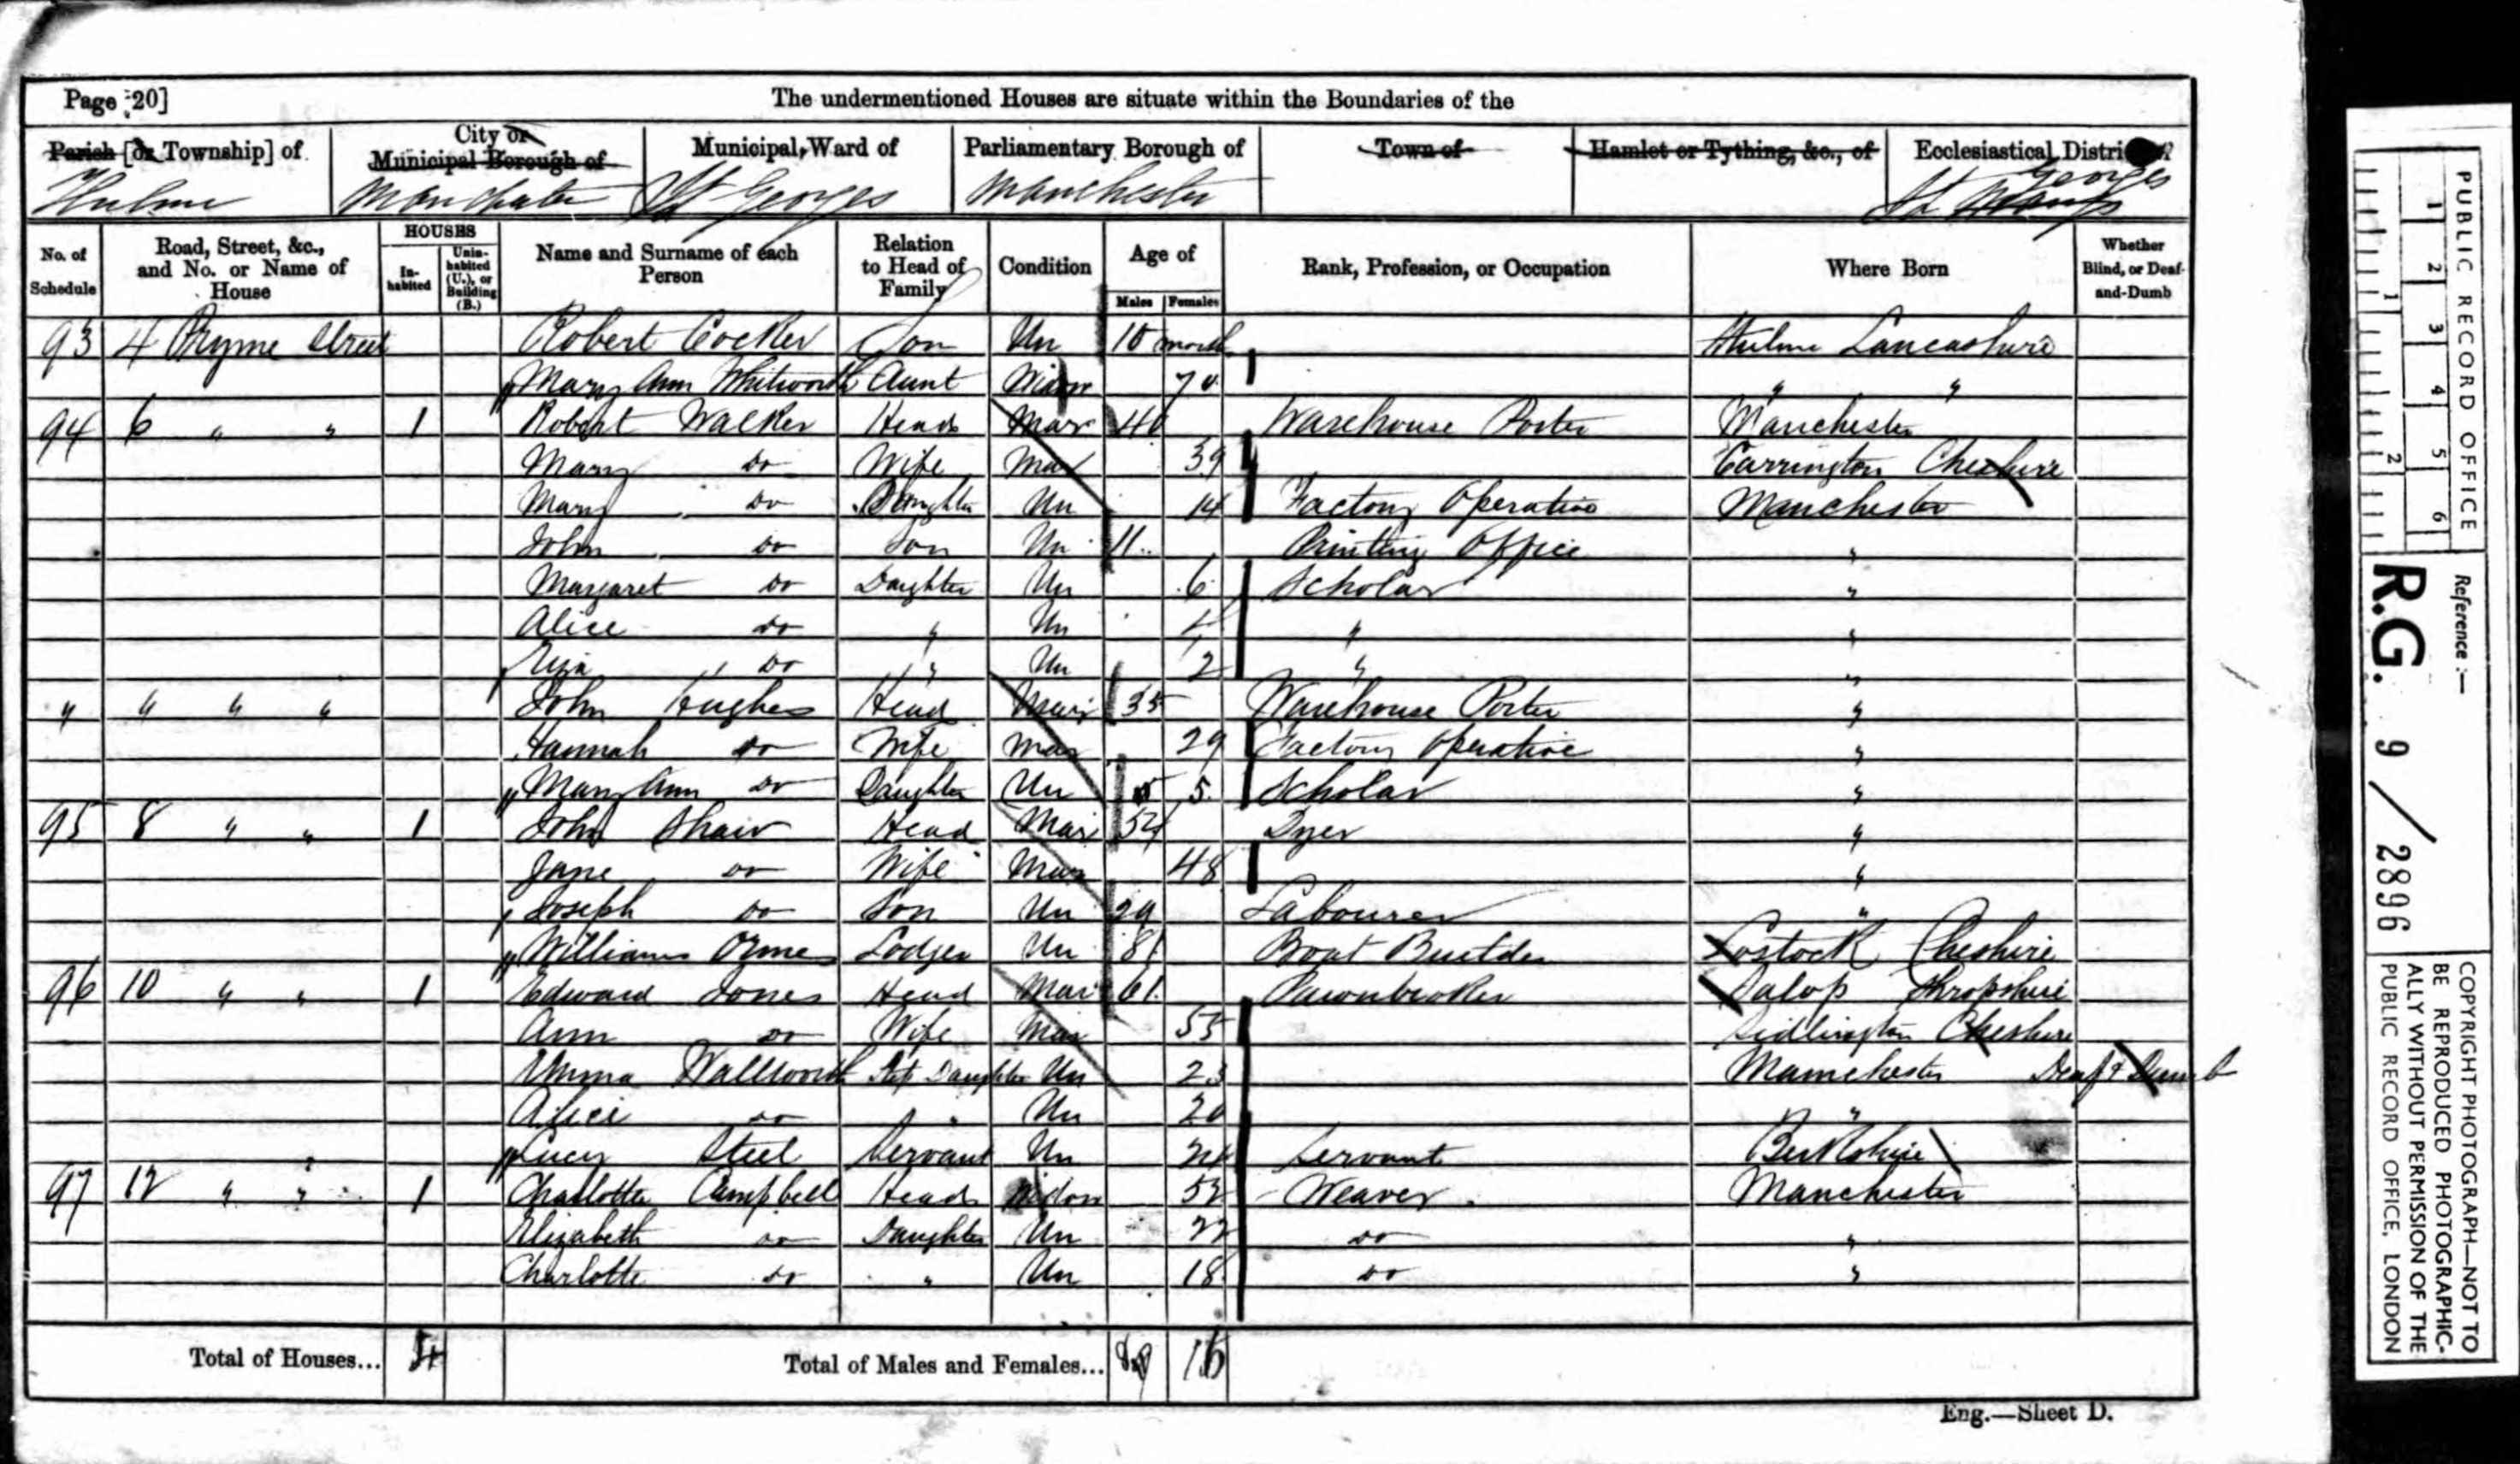 Page 20]
The undermentioned Houses are situate within the Boundaries of the
Parish [or Township] of City or Municipal Borough of Municipal Ward of Parliamentary Borough of Town of Hamlet or Tything, &c., of Ecclesiastical District
Hulme Manchester St Georges Manchester St Georges
No. of Schedule Road, Street, &c., and No. or Name of House HOUSES Inhabited Uninhabited (U.), or Building (B.) Name and Surname of each Person Relation to Head of Family Condition Age of Males Females Rank, Profession, or Occupation Where Born Whether Blind, or Deaf-and-Dumb
93 4 Pryme Street Robert Cocker Son Un 10 month Hulme Lancashire
Mary Ann Whitworth Aunt Widow 70 " "
94 6 " " 1 Robert Walker Head Mar 40 Warehouse Porter Manchester
Mary Do Wife Mar 39 Carrington Cheshire
Mary Do Daughter Un 14 Factory Operative Manchester
John Do Son Un 11 Printing Office "
Margaret Do Daughter Un 6 Scholar "
Alice Do " Un 4 " "
Eliza Do " Un 2 " "
" " " " John Hughes Head Mar 35 Warehouse Porter "
Hannah Do Wife Mar 29 Factory Operative "
Mary Ann Do Daughter Un 5 Scholar "
95 8 " " 1 John Shaw Head Mar 54 Dyer "
Jane Do Wife Mar 48 "
Joseph Do Son Un 29 Labourer "
William Orme Lodger Un 81 Boat Builder Lostock Cheshire
96 10 " " 1 Edward Jones Head Mar 61 Pawnbroker Salop Shropshire
Ann Do Wife Mar 55 Cheshire
Emma Wallworth Step Daughter Un 23 Manchester Deaf & Dumb
Alice Do " Un 20 "
Lucy Steel Servant Un 24 Servant Berkshire
97 12 " " 1 Charlotte Campbell Head Widow 52 Weaver Manchester
Elizabeth Do Daughter Un 22 Do "
Charlotte Do " Un 18 Do "
Total of Houses... 4 Total of Males and Females... 9 15
Eng.—Sheet D.
PUBLIC RECORD OFFICE
1 2 3 4 5 6
1 2
Reference :—
R.G. 9 / 2896
COPYRIGHT PHOTOGRAPH—NOT TO
BE REPRODUCED PHOTOGRAPHIC-
ALLY WITHOUT PERMISSION OF THE
PUBLIC RECORD OFFICE, LONDON